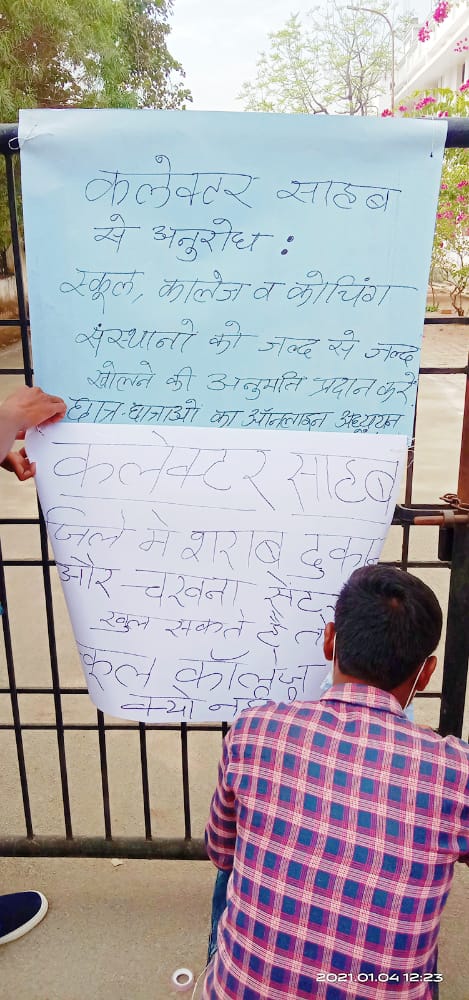 कलेक्टर साहब
से अनुरोध :
स्कूल, कालेज व कोचिंग
संस्थानो को जल्द से जल्द
खोलने की अनुमति प्रदान करे
छात्र-छात्राओं का ऑनलाइन अध्ययन
कलेक्टर साहब
जिले मे शराब दुका
और चखना सेंटर
खुल सकते है तो
कूल कॉलेज
क्यो नह
2021.01.04 12:23